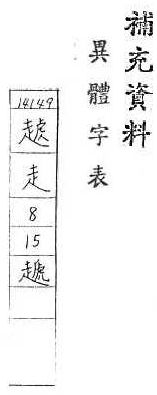 補充資料
異體字表
14149
走
8
15